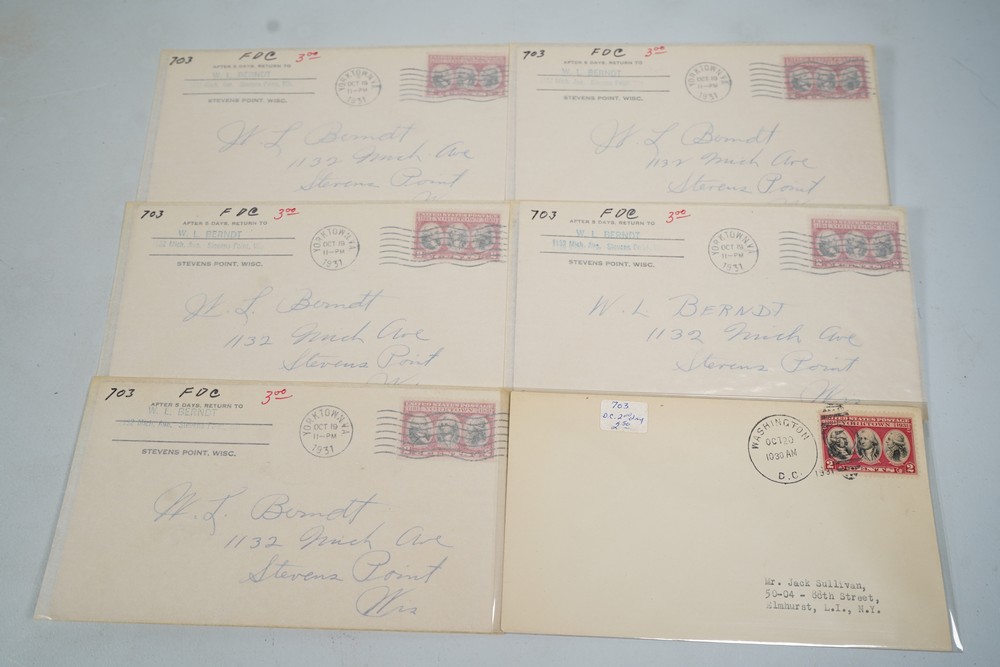 703 FDC 3.00
AFTER 5 DAYS, RETURN TO
W. L. BERNDT
STEVENS POINT, WISC.
YORKTOWN, VA
OCT 19
11-PM
1931
W L Berndt
1132 Mich Ave
Stevens Point
703 FDC 3.00
AFTER 5 DAYS, RETURN TO
W. L. BERNDT
STEVENS POINT, WISC.
YORKTOWN, VA
OCT 19
11-PM
1931
W L Berndt
1132 Mich Ave
Stevens Point
703 FDC 3.00
AFTER 5 DAYS, RETURN TO
W. L. BERNDT
1132 Mich. Ave. Stevens Point, Wis.
STEVENS POINT, WISC.
YORKTOWN, VA
OCT 19
11-PM
1931
UNITED STATES POSTAGE
W L Berndt
1132 Mich Ave
Stevens Point
Wis
703 FDC 3.00
AFTER 5 DAYS, RETURN TO
W. L. BERNDT
1132 Mich. Ave. Stevens Point,
STEVENS POINT, WISC.
YORKTOWN, VA
OCT 19
11-PM
1931
UNITED STATES POSTAGE
W. L BERNDT
1132 Mich Ave
Stevens Point
Wis
703 FDC 3.00
AFTER 5 DAYS, RETURN TO
W. L. BERNDT
STEVENS POINT, WISC.
YORKTOWN, VA
OCT 19
11-PM
1931
UNITED STATES POSTAGE
1781 YORKTOWN 1931
2 CENTS 2
W. L. Berndt
1132 Mich Ave
Stevens Point
Wis
703
D.C. 2nd day
WASHINGTON
OCT 20
1030 AM
D.C.
1931
UNITED STATES POSTAGE
1781 YORKTOWN 1931
2 CENTS 2
Mr. Jack Sullivan,
50-04 - 88th Street,
Elmhurst, L.I., N.Y.